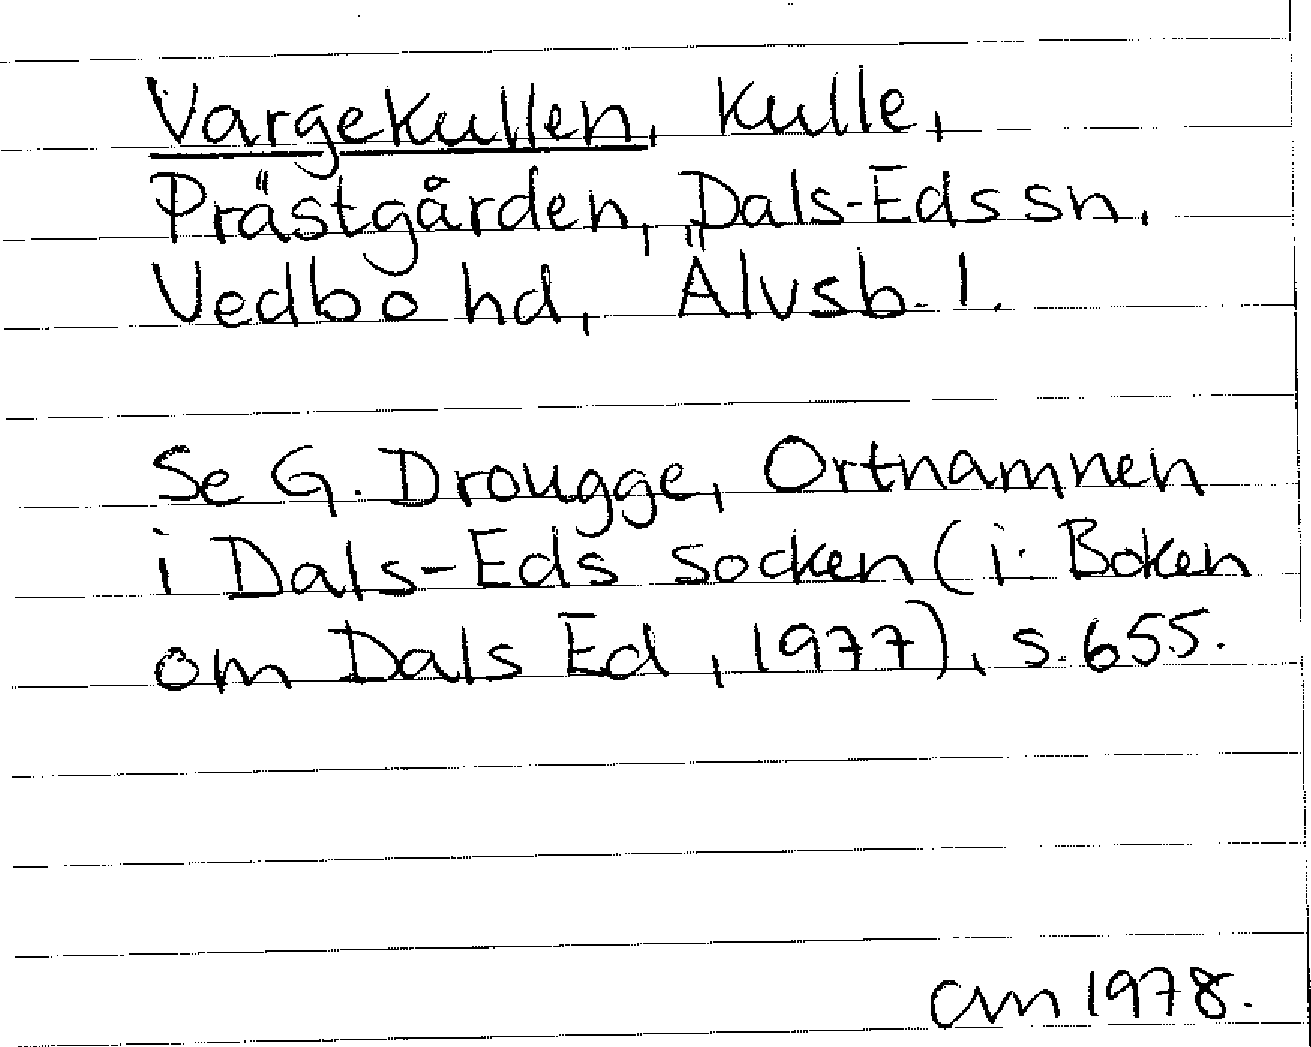 Vargekullen, kulle,
Prästgården, Dals-Eds sn.
Vedbo hd, Älvsb. l.
Se G. Drougge, Ortnamnen
i Dals-Eds socken (i: Boken
om Dals Ed, 1977), s. 655.
cm 1978.